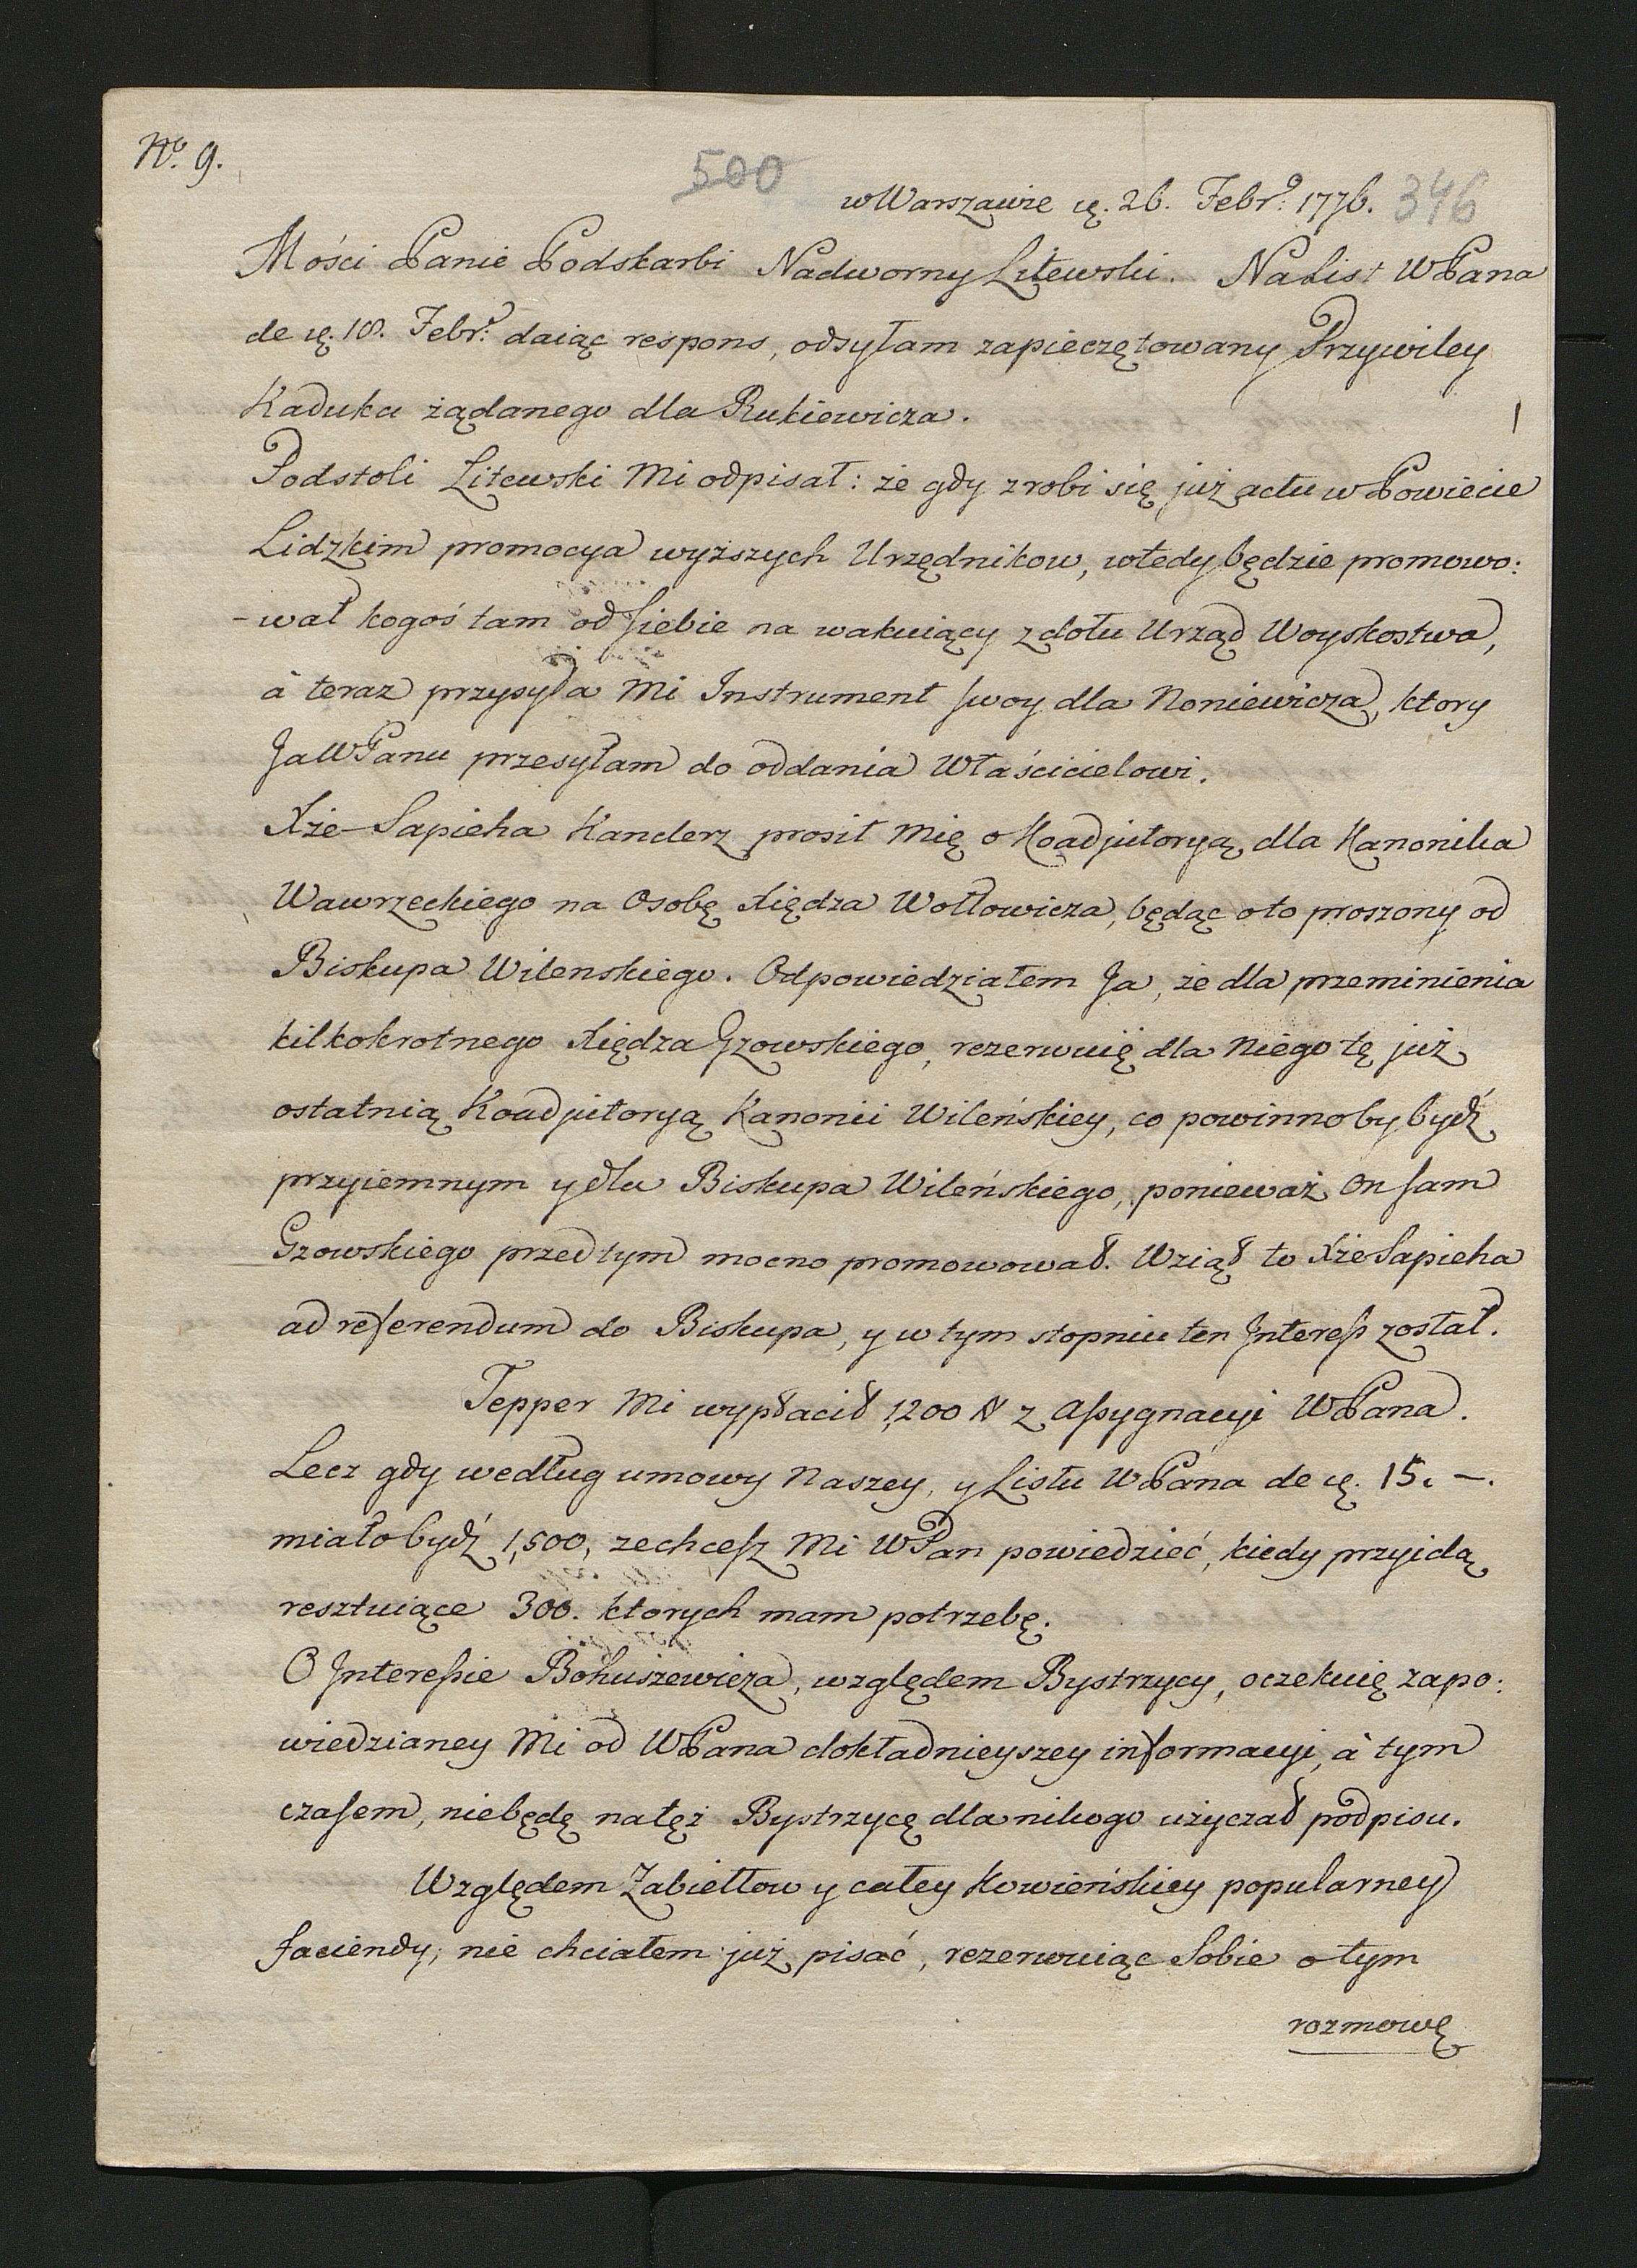 No. 9.
500
w Warszawie ę. 26. Febr: 1776. 346
Mości Panie Podskarbi Nadworny Litewski. Na List WPana
de ę. 18. Febr: daiąc respons, odsyłam zapieczętowany Przywiley
Kaduka żądanego dla Rukiewicza.
Podstoli Litewski Mi odpisał: że gdy zrobi się już actu w Powiecie
Lidzkim promocya wyższych Urzędnikow, wtedy będzie promowo:
-wał kogoś tam od siebie na wakuiący z dołu Urząd Woyskostwa,
à teraz przysyła Mi Instrument swoy dla Noniewicza, ktory
Ja WPanu przesyłam do oddania Właścicielowi.
Xże Sapieha Kanclerz prosił Mię o Koadjutoryą dla Kanonika
Wawrzeckiego na Osobę Xiędza Wołłowicza, będąc oto proszony od
Biskupa Wilenskiego. Odpowiedziałem Ja, że dla przeminienia
kilkokrotnego Xiędza Gzowskiego, rezerwuię dla Niego tę już
ostatnią Koadjutoryą Kanonii Wileńskiey, co powinnoby bydź
przyiemnym y dla Biskupa Wileńskiego, ponieważ On sam
Gzowskiego przedtym mocno promowował. Wziął to Xże Sapieha
ad referendum do Biskupa, y w tym stopniu ten Interess został.
Tepper Mi wypłacił 1,200 # z Assygnacyi WPana.
Lecz gdy według umowy Naszey, y Listu WPana de ę. 15. –.
miało bydź 1,500, zechcesz Mi WPan powiedzieć, kiedy przyidą
resztuiące 300. ktorych mam potrzebę.
O Interessie Bohuszewicza, względem Bystrzycy, oczekuię zapo:
wiedzianey Mi od WPana dokładnieyszey informacyi, à tym
czasem, niebędę natęż Bystrzycę dla nikogo użyczał podpisu.
Względem Zabiełłow y całey Kowieńskiey popularney
faciendy; nie chciałem już pisać, rezerwuiąc Sobie o tym
rozmowę